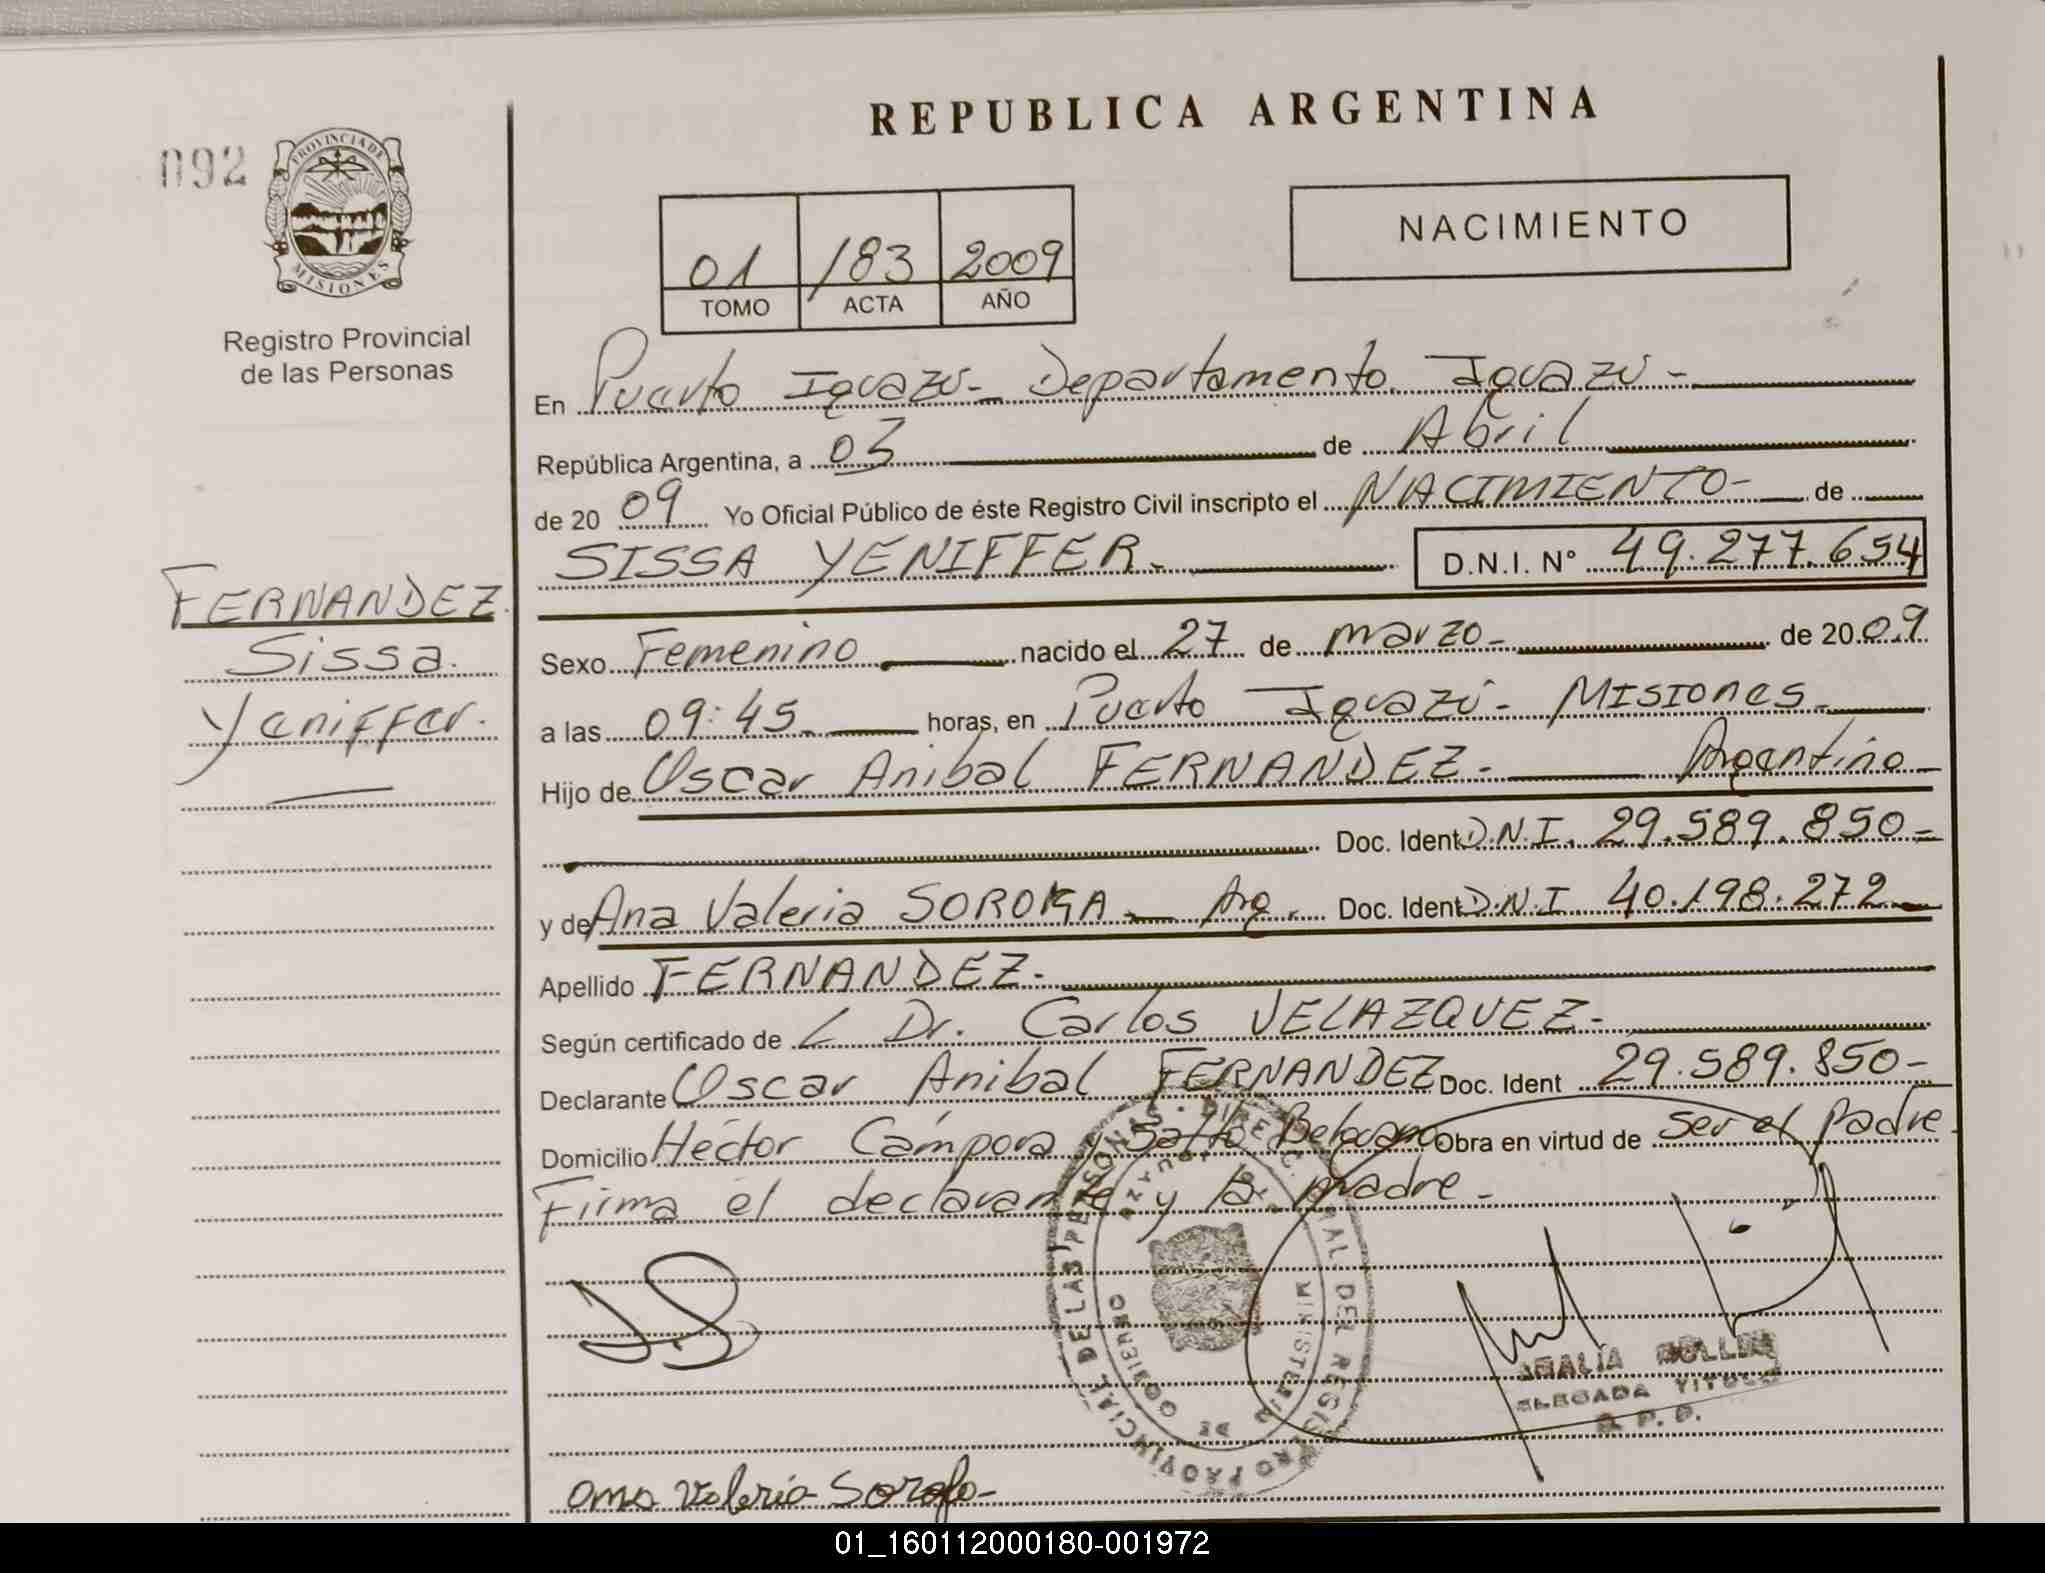 REPUBLICA ARGENTINA
092
PROVINCIA DE MISIONES
Registro Provincial
de las Personas
01 183 2009
TOMO ACTA AÑO
NACIMIENTO
En Puerto Iguazú - Departamento Iguazú -
República Argentina, a 03 de Abril
de 2009 Yo Oficial Público de éste Registro Civil inscripto el NACIMIENTO - de
SISSA YENIFFER. D.N.I. N° 49.277.654
FERNANDEZ.
Sissa.
Yeniffer.
Sexo Femenino nacido el 27 de marzo - de 2009
a las 09:45 horas, en Puerto Iguazú - MISIONES -
Hijo de Oscar Anibal FERNANDEZ - Argentino
Doc. Ident D.N.I. 29.589.850 -
y de Ana Valeria SOROKA - Arg. Doc. Ident D.N.I 40.198.272
Apellido FERNANDEZ -
Según certificado de L Dr. Carlos VELAZQUEZ -
Declarante Oscar Anibal FERNANDEZ Doc. Ident 29.589.850 -
Domicilio Héctor Cámpora y Salto Obra en virtud de ser el Padre
Firma el declarante y la madre -
REGISTRO PROVINCIAL DE LAS PERSONAS
MINISTERIO DE GOBIERNO
R. P. P.
01_160112000180-001972